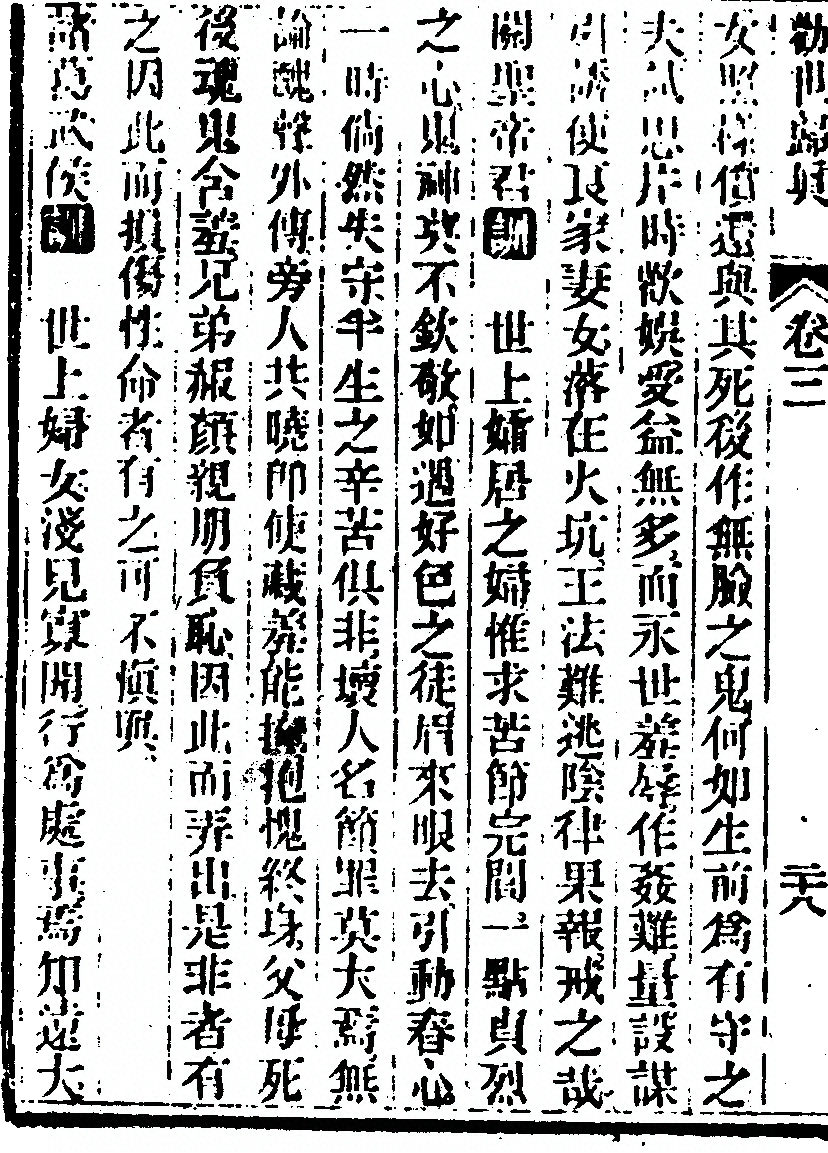 勸世歸眞 卷三 二十八
女照樣償還與其死後作無臉之鬼何如生前爲有守之
夫試思片時歡娛受益無多而永世羞辱作姦難量設謀
引誘使良家妻女落在火坑王法難逃陰律果報戒之哉
關聖帝君訓 世上孀居之婦惟求苦節完閨一點貞烈
之心鬼神莫不欽敬如遇好色之徒眉來眼去引動春心
一時倘然失守半生之辛苦俱非壞人名節罪莫大焉無
論醜聲外傳旁人共曉卽使藏羞能掩抱愧終身父母死
後魂鬼含羞兄弟赧顏親朋負恥因此而弄出是非者有
之因此而損傷性命者有之可不愼與
諸葛武侯訓 世上婦女淺見寡聞行爲處事焉知遠大